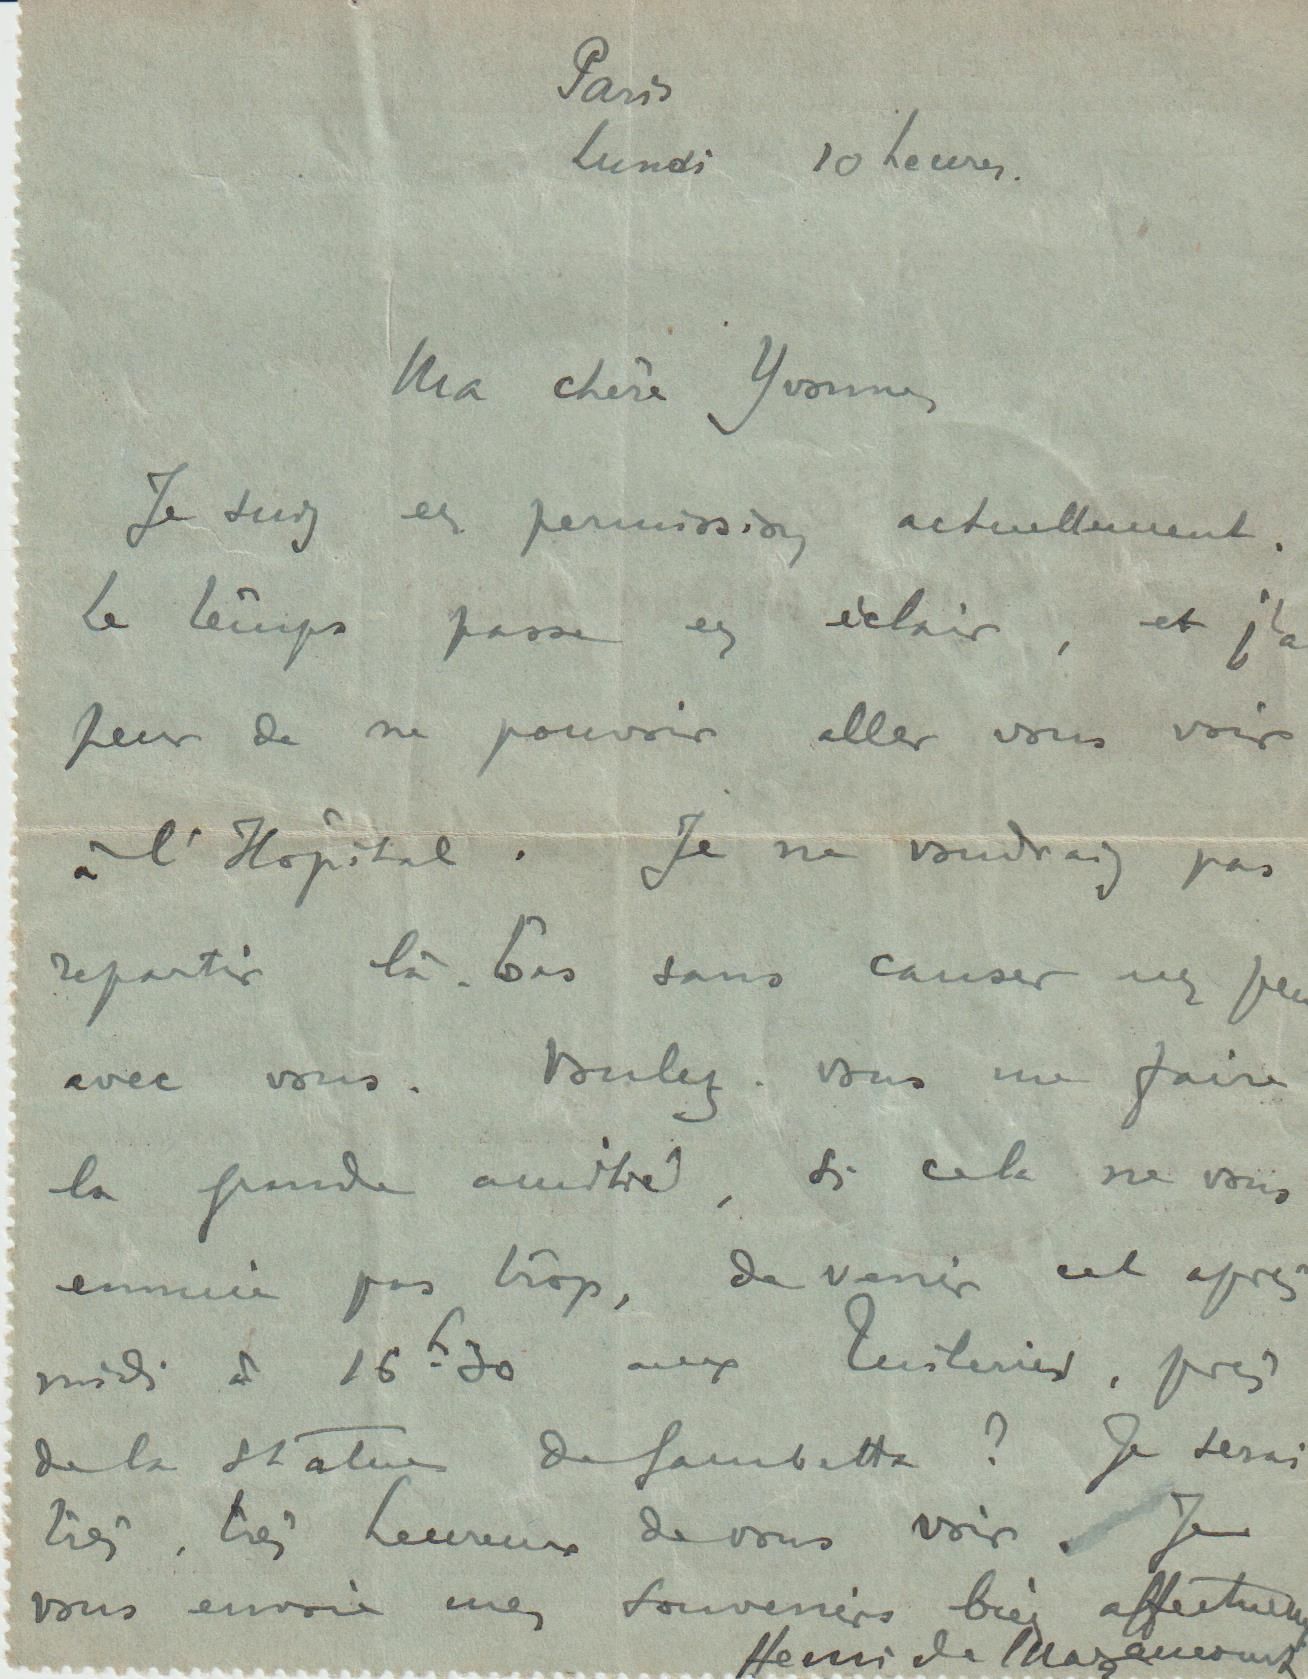 Paris
Lundi 10 heures.
Ma chère Yvonne,
Je suis en permission actuellement.
Le temps passe en éclair, et j'a
peur de ne pouvoir aller vous voir
à l'Hôpital. Je ne voudrais pas
repartir là-bas sans causer un peu
avec vous. Voulez-vous me faire
la grande amitié, si cela ne vous
ennuie pas trop, de venir cet après
midi à 16h30 aux Tuileries, près
de la statue de Gambetta ? Je serai
très, très heureux de vous voir. Je
vous envoie mes souvenirs bien affectueux
Henri de Mazancourt